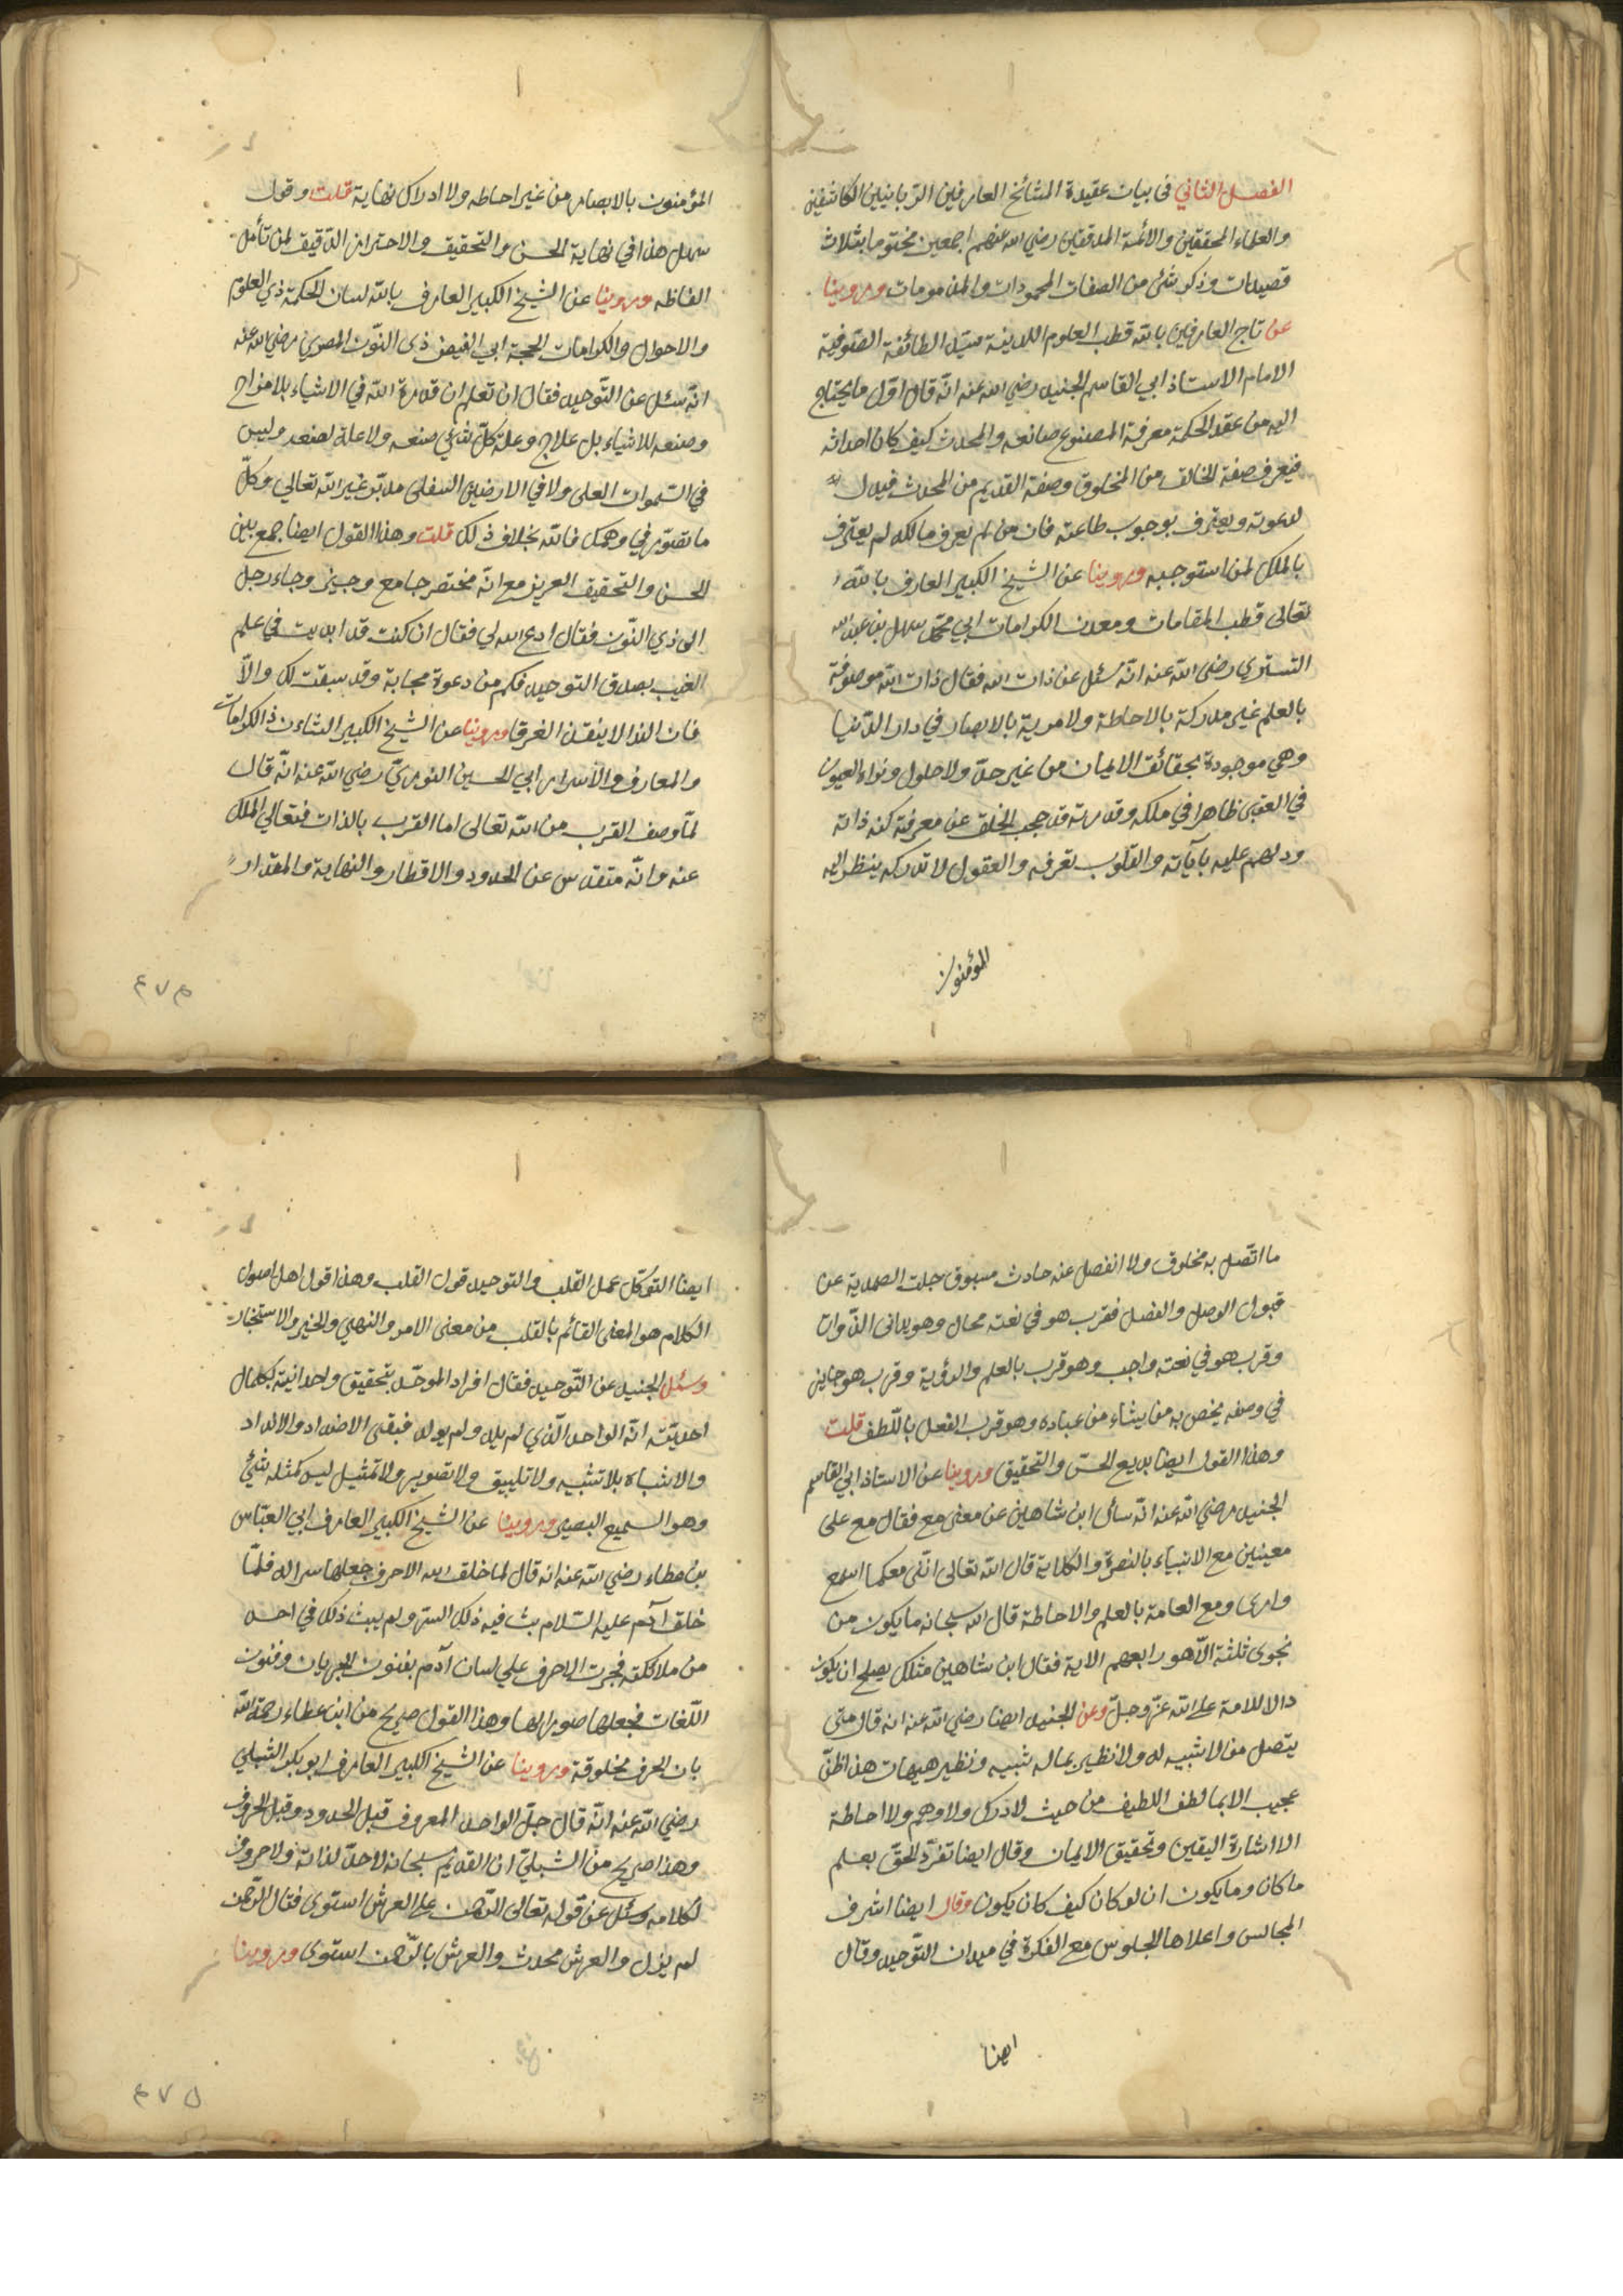 الفصل الثاني في بيان عقيدة المشائخ العارفين الربانيين الكاشفين
والعلماء المحققين والائمة المدققين رضي الله عنهم اجمعين مختوما بثلاث
قصيدات وذكر شئ من الصفات المحمودات والمذمومات وروينا
عن تاج العارفين بالله قطب العلوم اللدينة سيد الطائفة الصوفية
الامام الاستاذ ابي القاسم الجنيد رضي الله عنه انّه قال اوّل ما يحتاج
اليه من عقد الحكمة معرفة المصنوع صانعه والمحدث كيف كان احداثه
فيعرف صفة الخالق من المخلوق وصفة القديم من المحدث فيدل
لدعوته ويعترف بوجوب طاعته فان من لم يعرف مالكه لم يعترف
بالملك لمن استوجبه وروينا عن الشيخ الكبير العارف بالله
تعالى قطب المقامات ومعدن الكرامات ابي محمّد سهل بن عبد الله
التستري رضي الله عنه انّه سئل عن ذات الله فقال ذات الله موصوفة
بالعلم غير مدركة بالاحاطة ولا مرية بالابصار في دار الدّنيا
وهي موجودة بحقائق الايمان من غير حدّ ولا حلول وتراه العيون
في العقبى ظاهرا في ملكه وقدرته قد حجب الخلق عن معرفة كنه ذاته
ودلهم عليه بآياته والقلوب تعرفه والعقول لا تدركه ينظر اليه
المؤمنون
المؤمنون بالابصار من غير احاطه ولا ادراك نهاية قلت وقول
سهل هذا في نهاية الحسن والتحقيق والاحتراز الدّقيق لمن تأمّل
الفاظه وروينا عن الشيخ الكبير العارف بالله لسان الحكمة ذي العلوم
والاحوال والكرامات الحجة ابي الفيض ذى النّون المصري رضي الله عنه
انّه سئل عن التّوحيد فقال ان تعلم ان قدرة الله في الاشياء بلا مزاج
وصنعه للاشياء بل علاج وعلة كلّ شئ صنعه ولا علة لصنعه وليس
في السّموات العلى ولا في الارضين السفلى مدبّر غير الله تعالى وكلّ
ما تصوّر في وهمك فالله بخلاف ذلك قلت وهذا القول ايضا جمع بين
الحسن والتحقيق العزيز مع انّه مختصر جامع وجيز وجاء رجل
الى ذي النّون فقال ادع الله لي فقال ان كنت قد ايدت في علم
الغيب بصدق التوحيد فكم من دعوة مجابة وقد سبقت لك والّا
فان الندا لا ينقذ الغرقا وروينا عن الشيخ الكبير الشان ذ الكرامات
والمعارف والأسرار ابي الحسين النوريّ رضي الله عنه انّه قال
لمّا وصف القرب من الله تعالى اما القرب بالذات فتعالى الملك
عنه وانّه متقدس عن الحدود والاقطار والنهاية والمقدار
٤٧٤
ما اتّصل به مخلوق ولا انفصل عنه حادث مسبوق جلت الصمدية عن
قبول الوصل والفصل فقرب هو في نعته محال وهو يدانى الذّوات
وقرب هو في نعته واجب وهو قرب بالعلم والرؤية وقرب هو جايز
في وصفه يخص به من يشاء من عباده وهو قرب الفعل باللّطف قلت
وهذا القول ايضا بديع الحسن والتحقيق وروينا عن الاستاذ ابي القاسم
الجنيد رضي الله عنه انّه سأل ابن شاهين عن معنى مع فقال مع على
معنيين مع الانبياء بالنصرة والكلاية قال الله تعالى انّنى معكما اسمع
وارى ومع العامة بالعلم والاحاطة قال الله سبحانه ما يكون من
نجوى ثلثة الّا هو رابعهم الاية فقال ابن شاهين مثلك يصلح ان يكون
دالا للامة على الله عزّ وجلّ وعن الجنيد ايضا رضي الله عنه انه قال متى
يتّصل من لا شبيه له ولا نظير بما له شبيه ونظير هيهات هذا ظنّ
عجيب الا بما لطف اللطيف من حيث لا درك ولا وهم ولا احاطة
الا اشارة اليقين وتحقيق الايمان وقال ايضا تفرّد الحقّ بعلم
ما كان وما يكون ان لو كان كيف كان يكون وقال ايضا اشرف
المجالس واعلاها الجلوس مع الفكرة في ميدان التّوحيد وقال
ايضا
ايضا التّوكّل عمل القلب والتوحيد قول القلب وهذا قول اهل اصول
الكلام هو المعنى القائم بالقلب من معنى الامر والنهي والخير والاستخبار
وسئل الجنيد عن التّوحيد فقال افراد الموحّد بتحقيق واحدانيته بكمال
احديّته انّه الواحد الّذي لم يلد ولم يولد فبقى الاضداد والانداد
والاشباه بلا تشبيه ولا تكييف ولا تصوير ولا تمثيل ليس كمثله شئ
وهو السميع البصير وروينا عن الشيخ الكبير العارف ابي العبّاس
بن عطاء رضي الله عنه انه قال لما خلق الله الاحرف جعلها سرا له فلمّا
خلق آدم عليه السّلام بث فيه ذلك السّر ولم يبث ذلك في احد
من ملائكته فجرت الاحرف علي لسان آدم بفنون الجريان وفنون
اللّغات فجعلها صورا لها وهذا القول صريح من ابن عطاء رحمه الله
بان الحرف مخلوقة وروينا عن الشيخ الكبير العارف ابو بكر الشبلي
رضي الله عنه انّه قال جلّ الواحد المعروف قبل الحدود وقبل الحروف
وهذا صريح من الشبليّ ان القديم سبحانه لا حدّ لذاته ولا حروف
لكلامه وسئل عن قوله تعالى الرّحمن على العرش استوى فقال الرّحمن
لم يزل والعرش محدث والعرش بالرّحمن استوى وروينا
٤٧٥